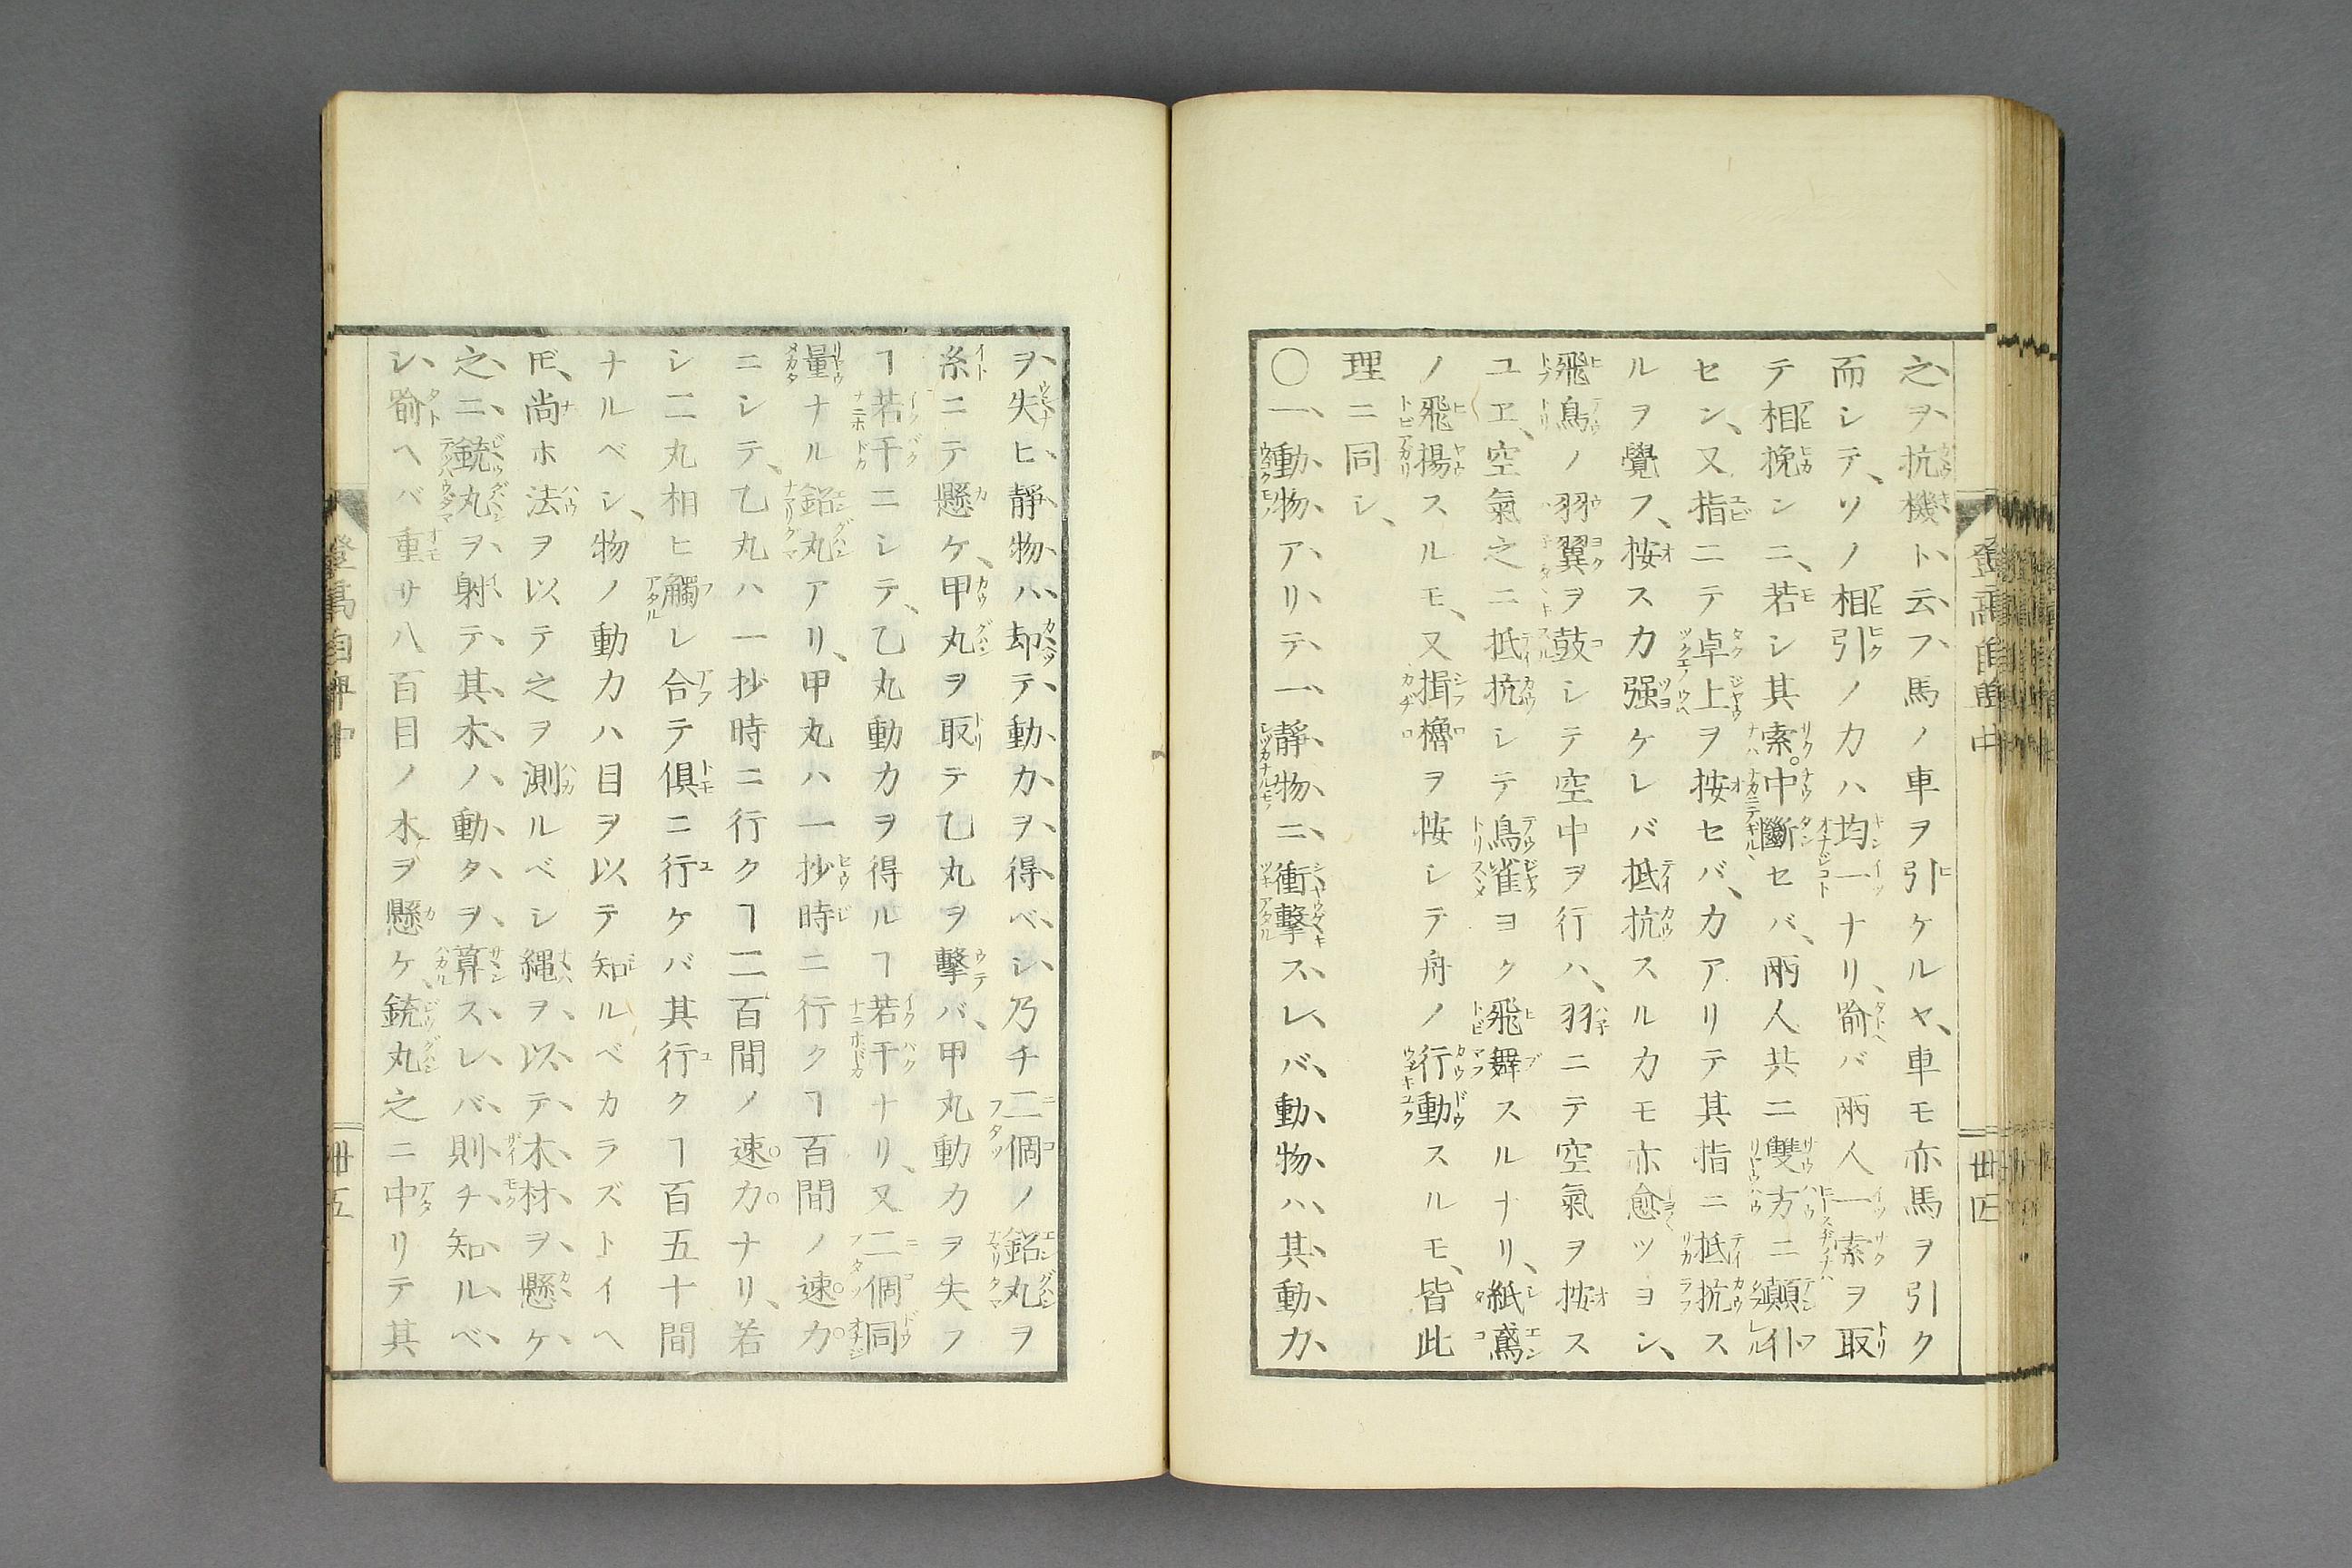 之ヲ抗機ト云フ、馬ノ車ヲ引ケルヤ、車モ亦馬ヲ引ク
而シテ、ソノ相引ノ力ハ均一ナリ、喻バ兩人一索ヲ取
テ相挽ンニ、若シ其索。中斷セバ、兩人共ニ雙方ニ顛仆
セン、又指ニテ卓上ヲ按セバ、力アリテ其指ニ抵抗ス
ルヲ覺フ、按ス力强ケレバ抵抗スル力モ亦愈ツヨシ、
飛鳥ノ羽翼ヲ鼓シテ空中ヲ行ハ、羽ニテ空氣ヲ按ス
ユヱ、空氣之ニ抵抗シテ鳥雀ヨク飛舞スルナリ、紙鳶
ノ飛揚スルモ、又揖櫓ヲ按シテ舟ノ行動スルモ、皆此
理ニ同シ、
〇一動物アリテ一靜物ニ衝擊スレバ動物ハ其動力
登高自卑中
卅四
ヲ失ヒ靜物ハ却テ動力ヲ得ベシ乃チ二個ノ鉛丸ヲ
糸ニテ懸ケ、甲丸ヲ取テ乙丸ヲ擊バ、甲丸動力ヲ失フ
ヿ若干ニシテ、乙丸動力ヲ得ルヿ若干ナリ、又二個同
量ナル鉛丸アリ、甲丸ハ一抄時ニ行クヿ百間ノ速力
ニシテ、乙丸ハ一抄時ニ行クヿ二百間ノ速力ナリ、若
シ二丸相ヒ觸レ合テ俱ニ行ケバ其行クヿ百五十間
ナルベシ、物ノ動力ハ目ヲ以テ知ルベカラズトイヘ
𪜈、尚ホ法ヲ以テ之ヲ測ルベシ縄ヲ以テ木材ヲ懸ケ
之ニ銃丸ヲ射テ其木ノ動タヲ算スレバ則チ知ルベ
シ、喻ヘバ重サ八百目ノ木ヲ懸ケ、銃丸之ニ中リテ其
登高自卑中
卅五